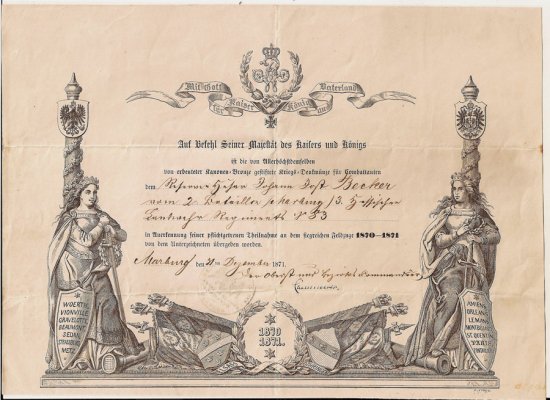 Mit Gott für Kaiser König und Vaterland
Auf Befehl Seiner Majestät des Kaisers und Königs
ist die von Allerhöchstdemselben
von eroberter Kanonen-Bronze gestiftete Kriegs-Denkmünze für Combattanten
dem Johann Jost Becker
vom 2. Bataillon Marburg 3. Hessischen
Landwehr Regiments N° 83
in Anerkennung seiner pflichtgetreuen Theilnahme an dem siegreichen Feldzuge 1870–1871
von dem Unterzeichneten übergeben worden.
Marburg den Dezember 1871.
Der Oberst und Bezirks Commandeur
WOERTH
VIONVILLE
GRAVELOTTE
BEAUMONT
SEDAN
STRASSBURG
METZ
AMIENS
ORLEANS
LE MANS
ST. QUENTIN
PARIS
1870
1871.